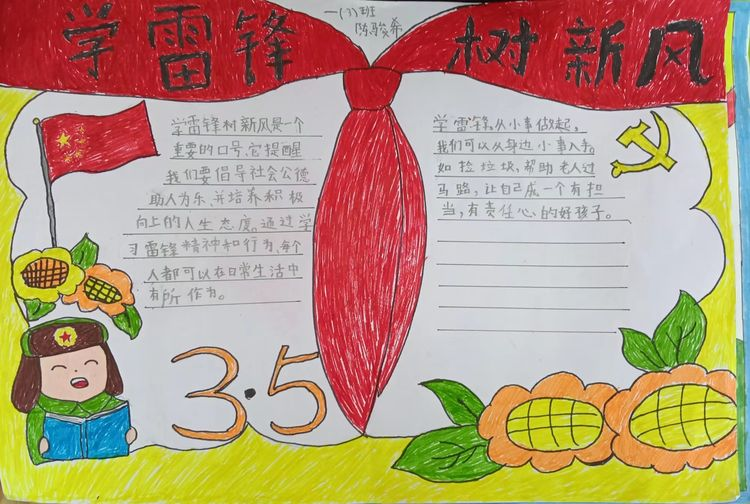 学雷锋 树新风
一(3)班
陈骏希
学雷锋树新风是一个
重要的口号,它提醒
我们要倡导社会公德
助人为乐,并培养积极
向上的人生态度。通过学
习雷锋精神和行为,每个
人都可以在日常生活中
有所作为。
3·5
学雷锋,从小事做起,
我们可以从身边小事入手。
如捡垃圾,帮助老人过
马路,让自己成一个有担
当,有责任心的好孩子。